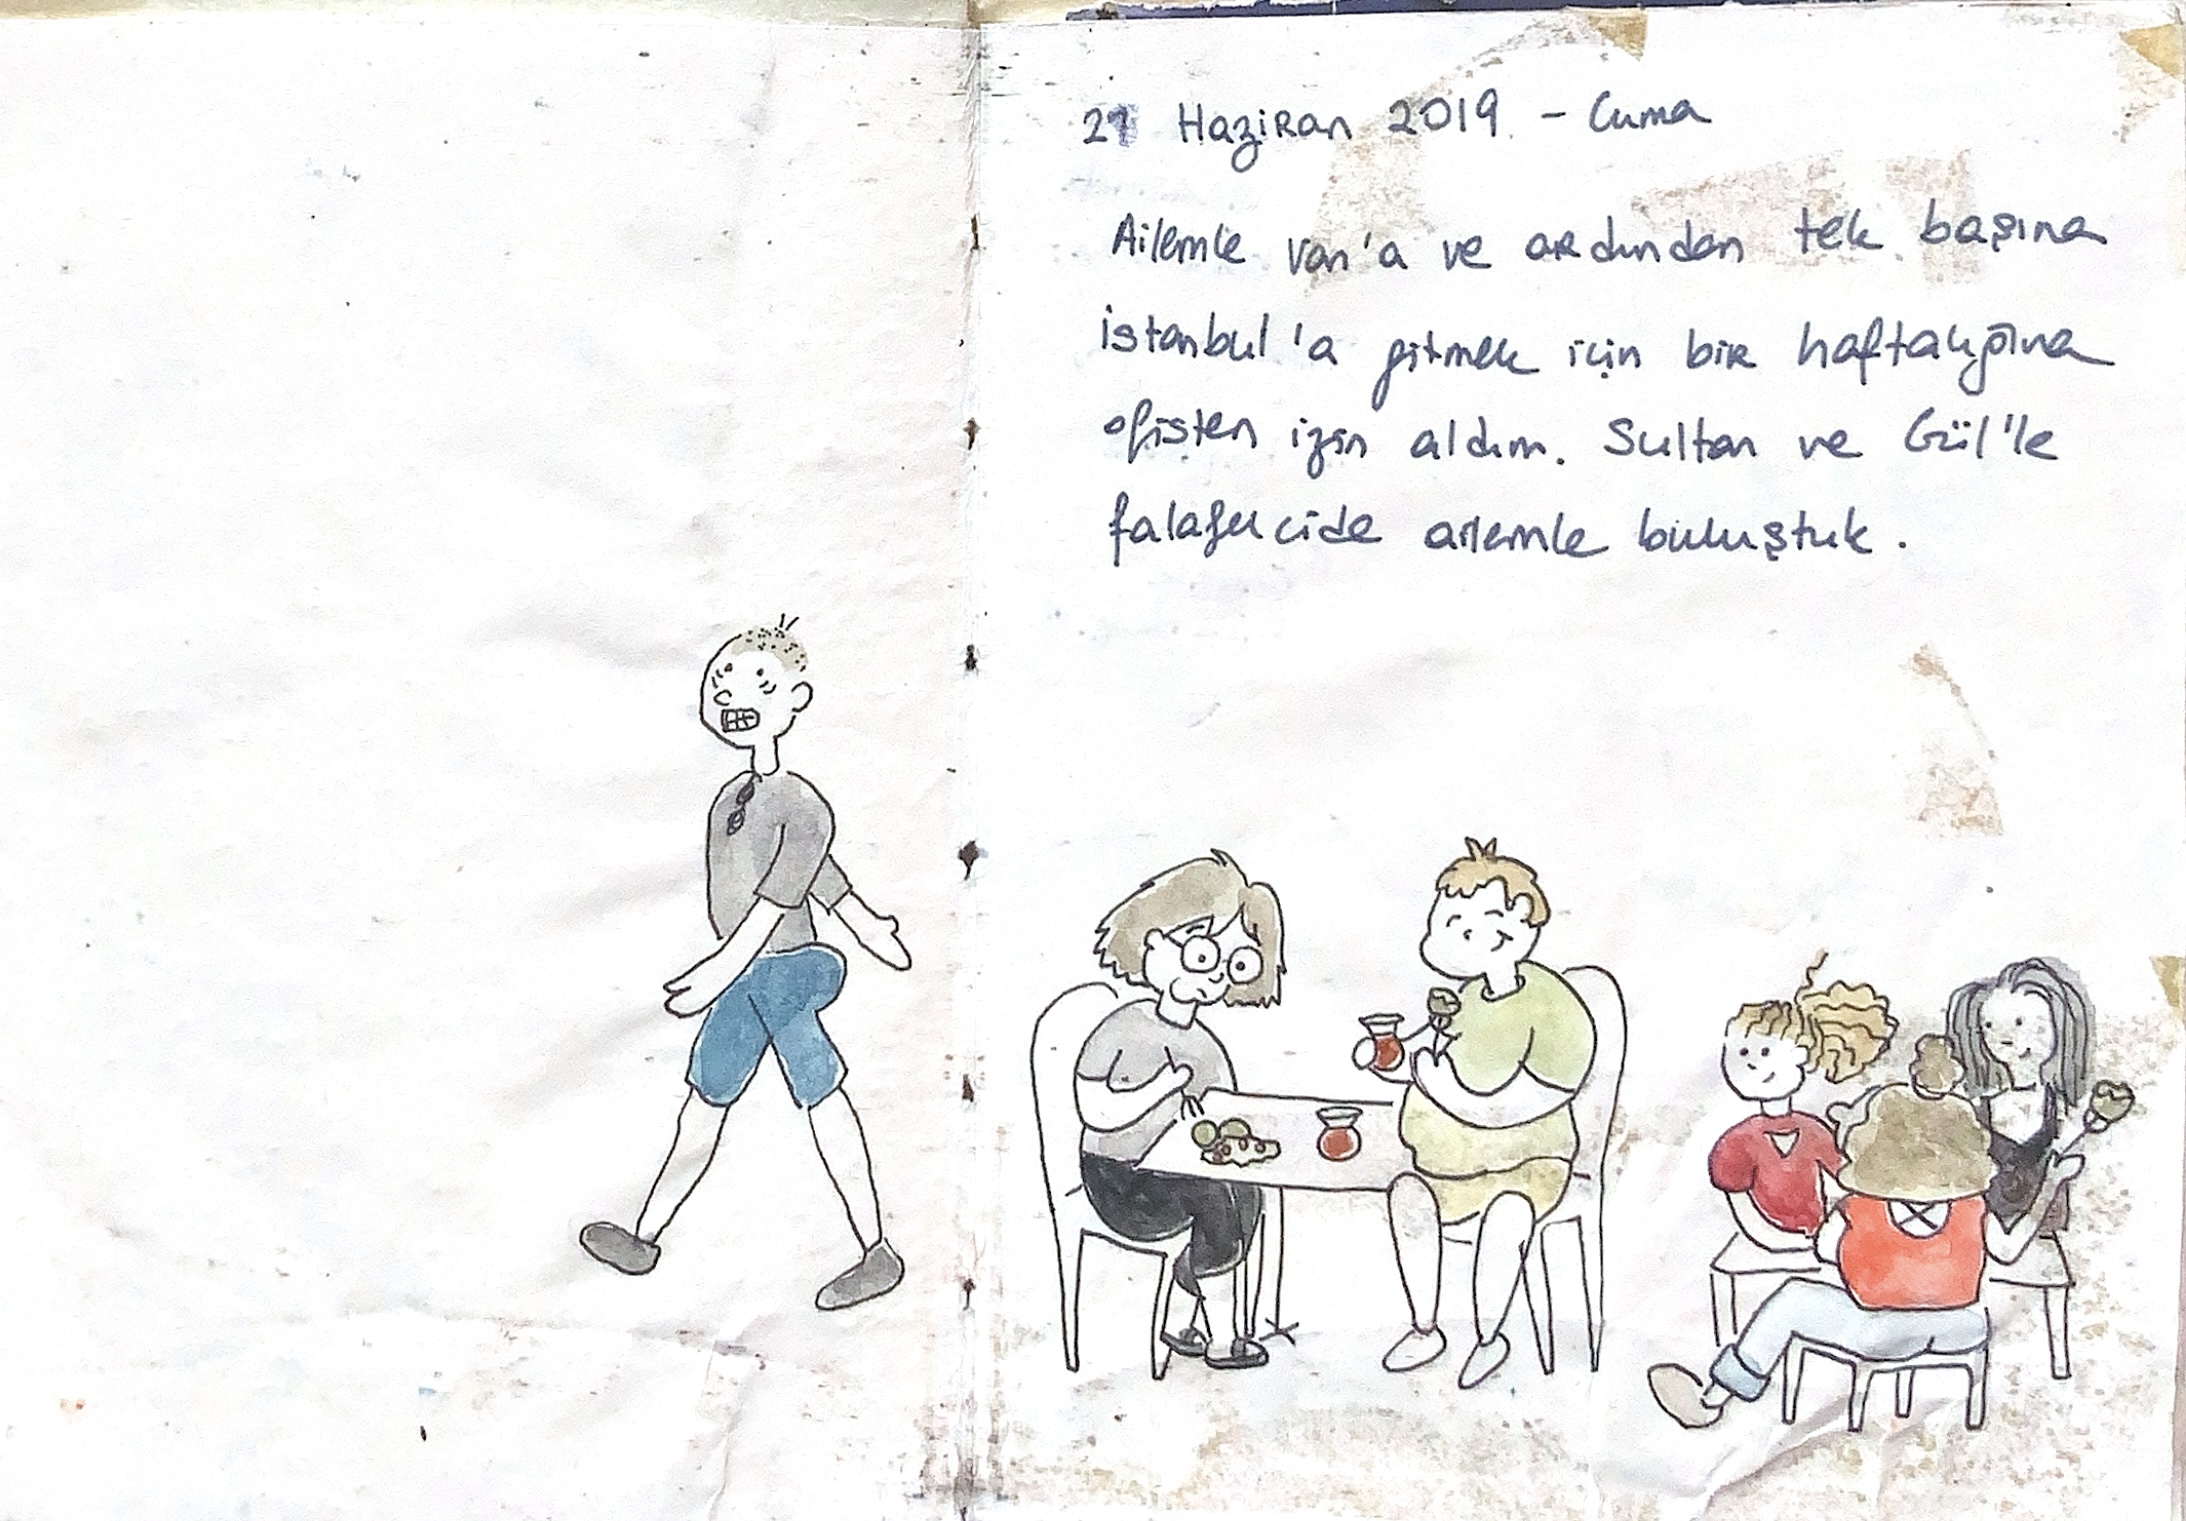 21 Haziran 2019 - Cuma
Ailemle Van'a ve ardından tek başına
istanbul'a gitmek için bir haftalığına
ofisten izin aldım. Sultan ve Gül'le
falafelcide ailemle buluştuk.